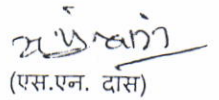 (एस.एन. दास)